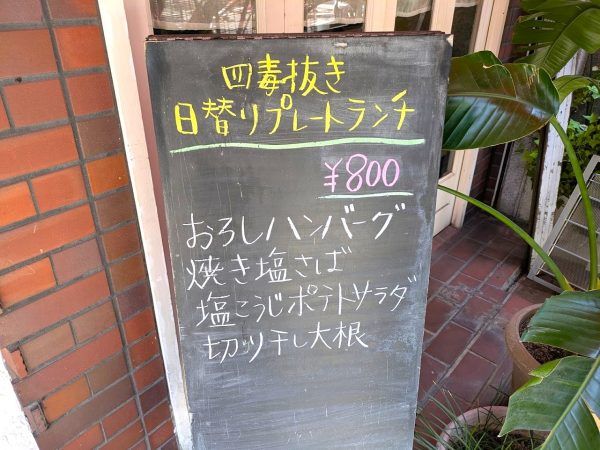 四毒抜き
日替りプレートランチ
¥800
おろしハンバーグ
焼き塩さば
塩こうじポテトサラダ
切り干し大根